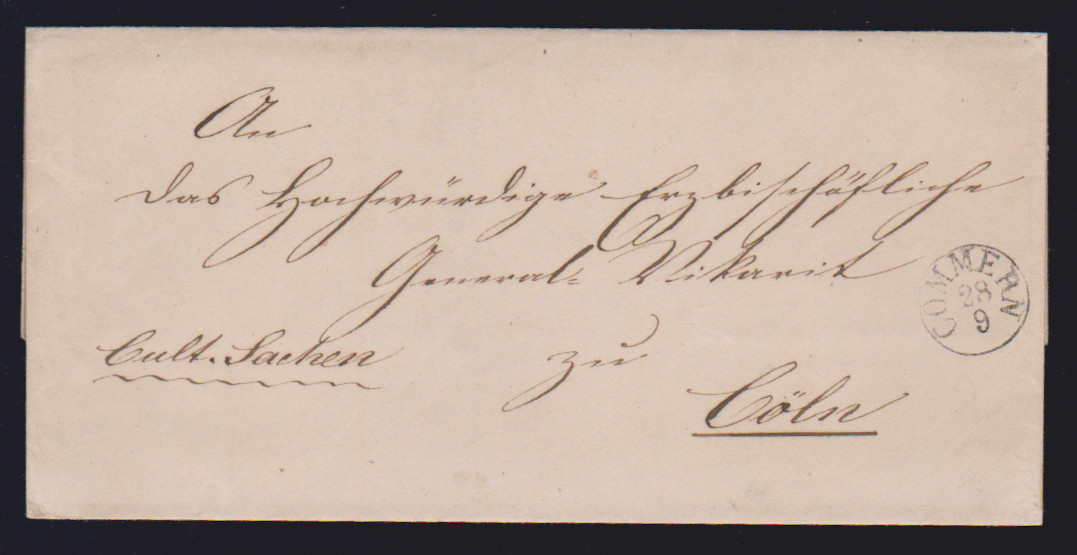 An
das Hochwürdige Erzbischöfliche
General-Vikariat
Cult. Sachen
zu
Cöln
COMMERN
28
9